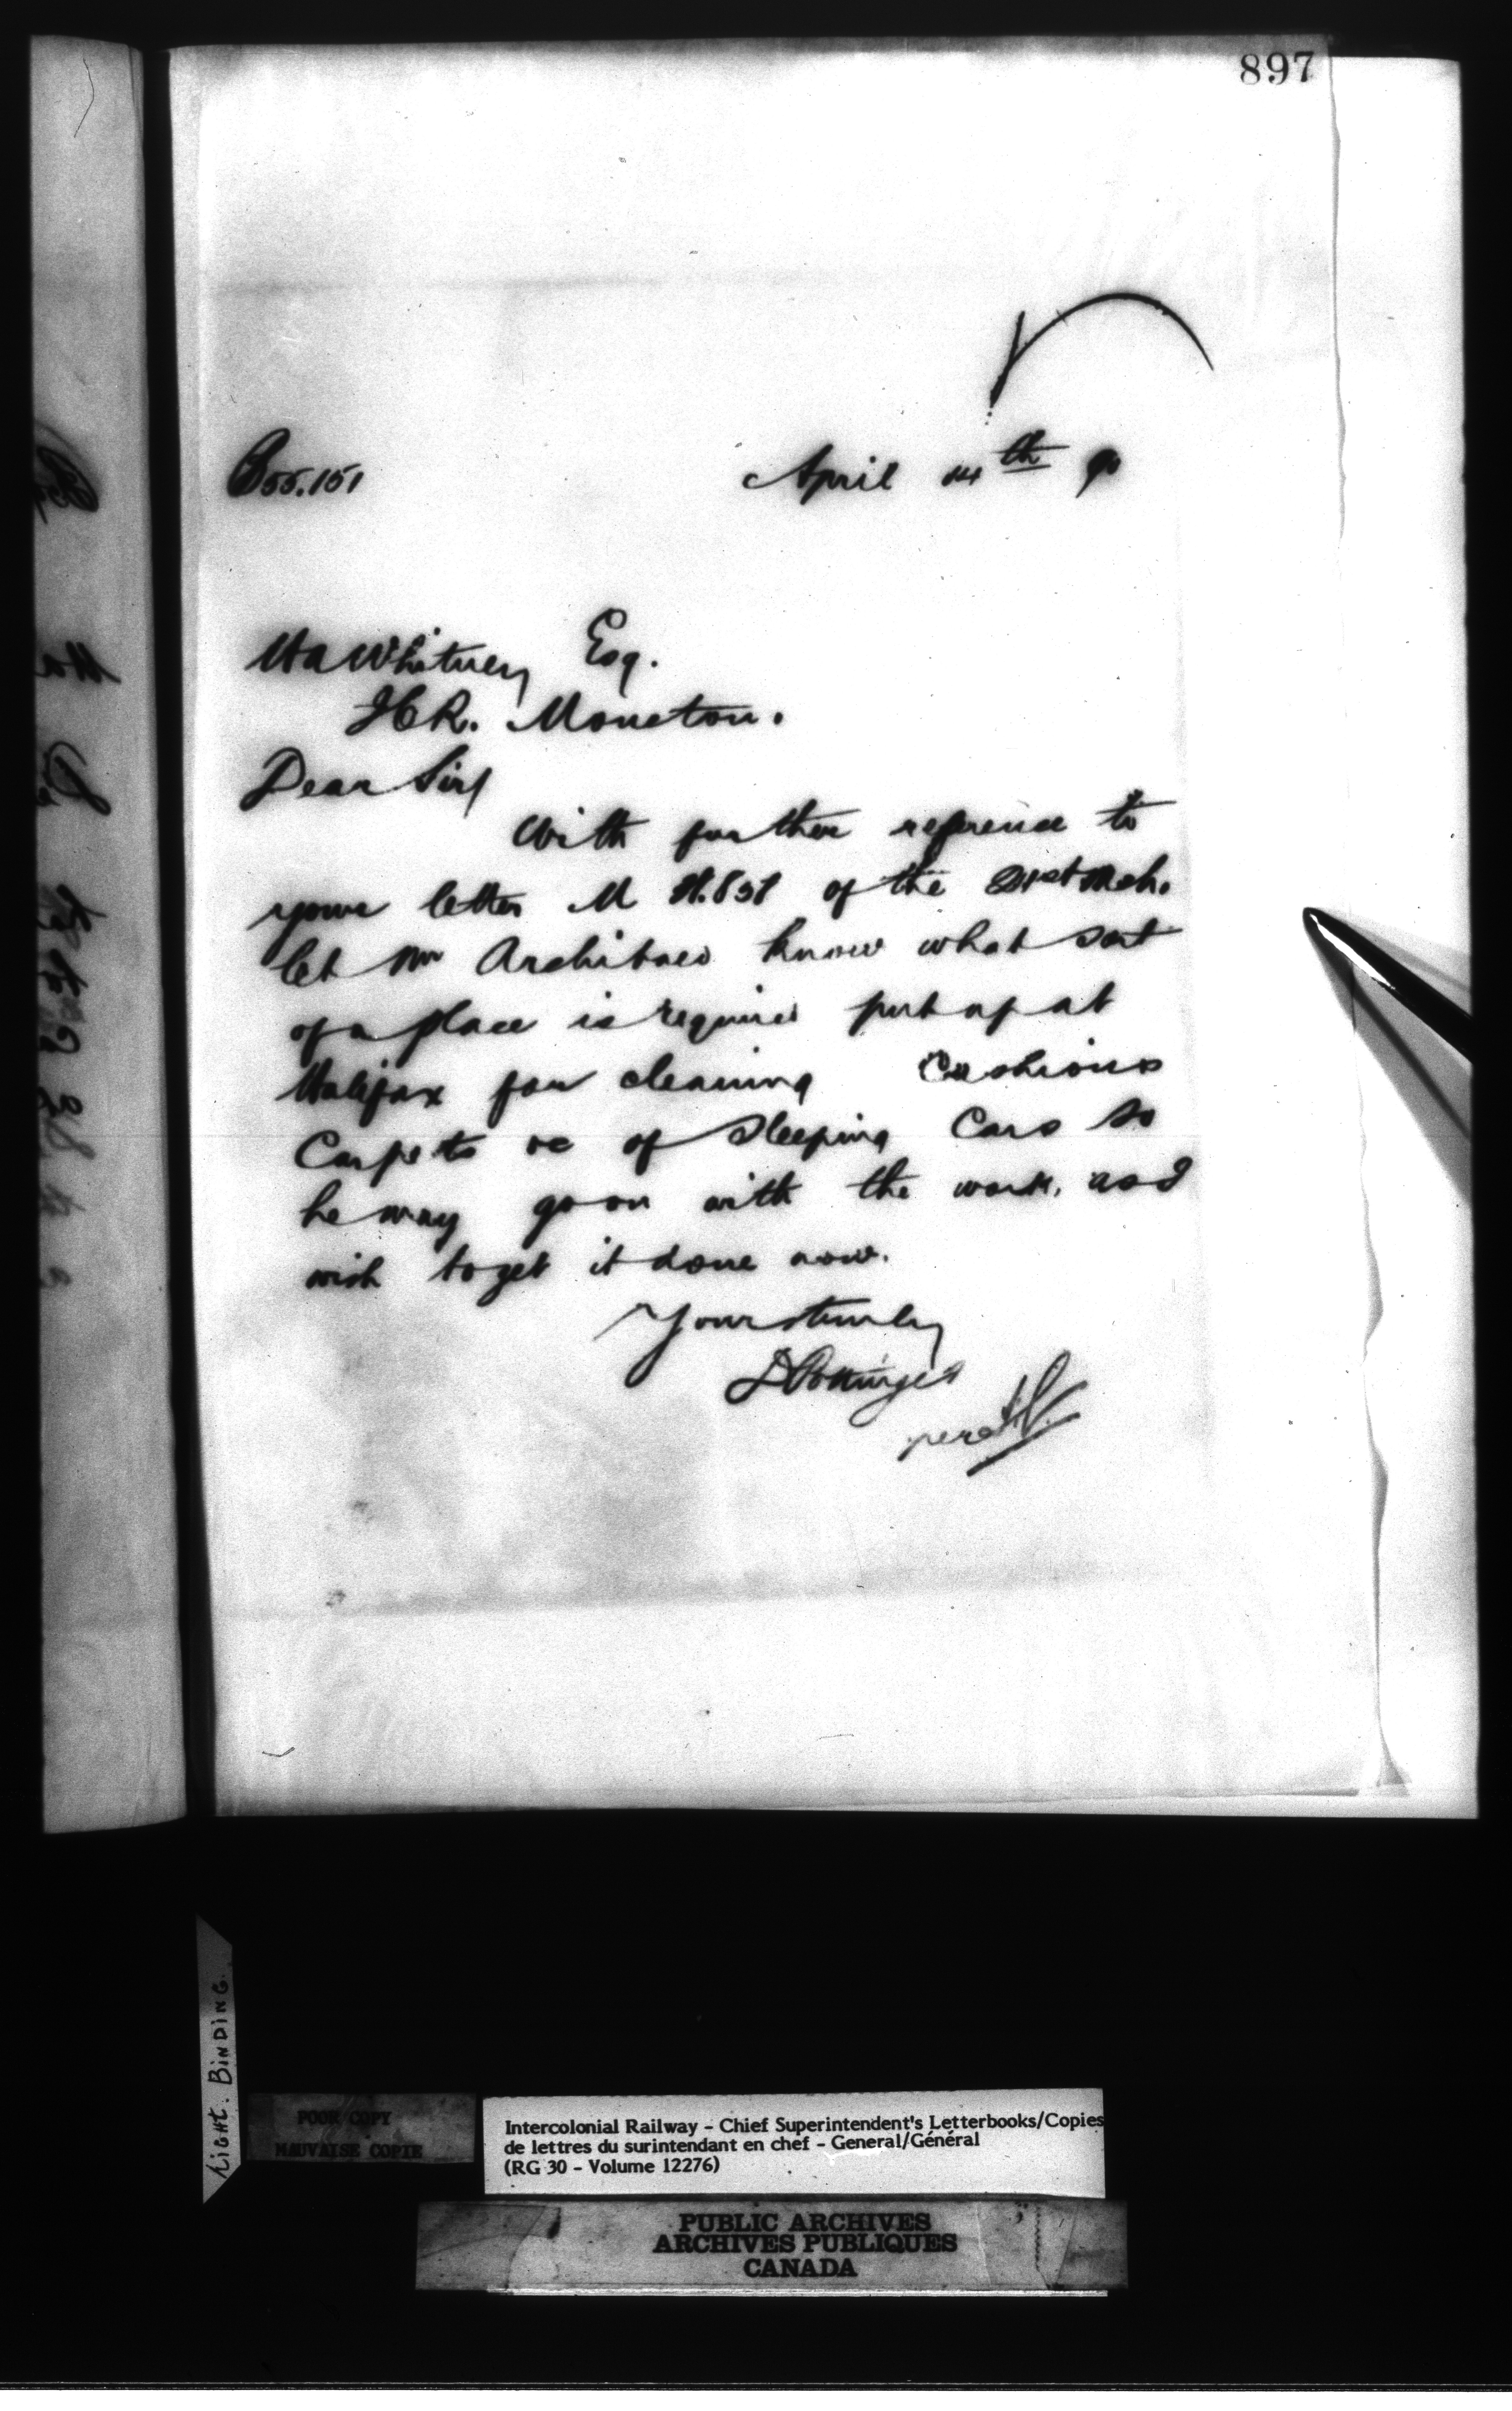 897
B55.151
April 14th 90
H A Whitney Esq.
ICR. Moncton.
Dear Sir/
With further reference to
your letter M of the 21st Mch.
let Mr Archibald know what sort
of a place is required put up at
Halifax for cleaning Cushions
Carpets &c of Sleeping Cars so
he may go on with the work, as I
wish to get it done now.
Yours truly
D Pottinger
per
LIGHT. BINDING.
POOR COPY
MAUVAISE COPIE
Intercolonial Railway - Chief Superintendent's Letterbooks/Copies
de lettres du surintendant en chef - General/Général
(RG 30 - Volume 12276)
PUBLIC ARCHIVES
ARCHIVES PUBLIQUES
CANADA